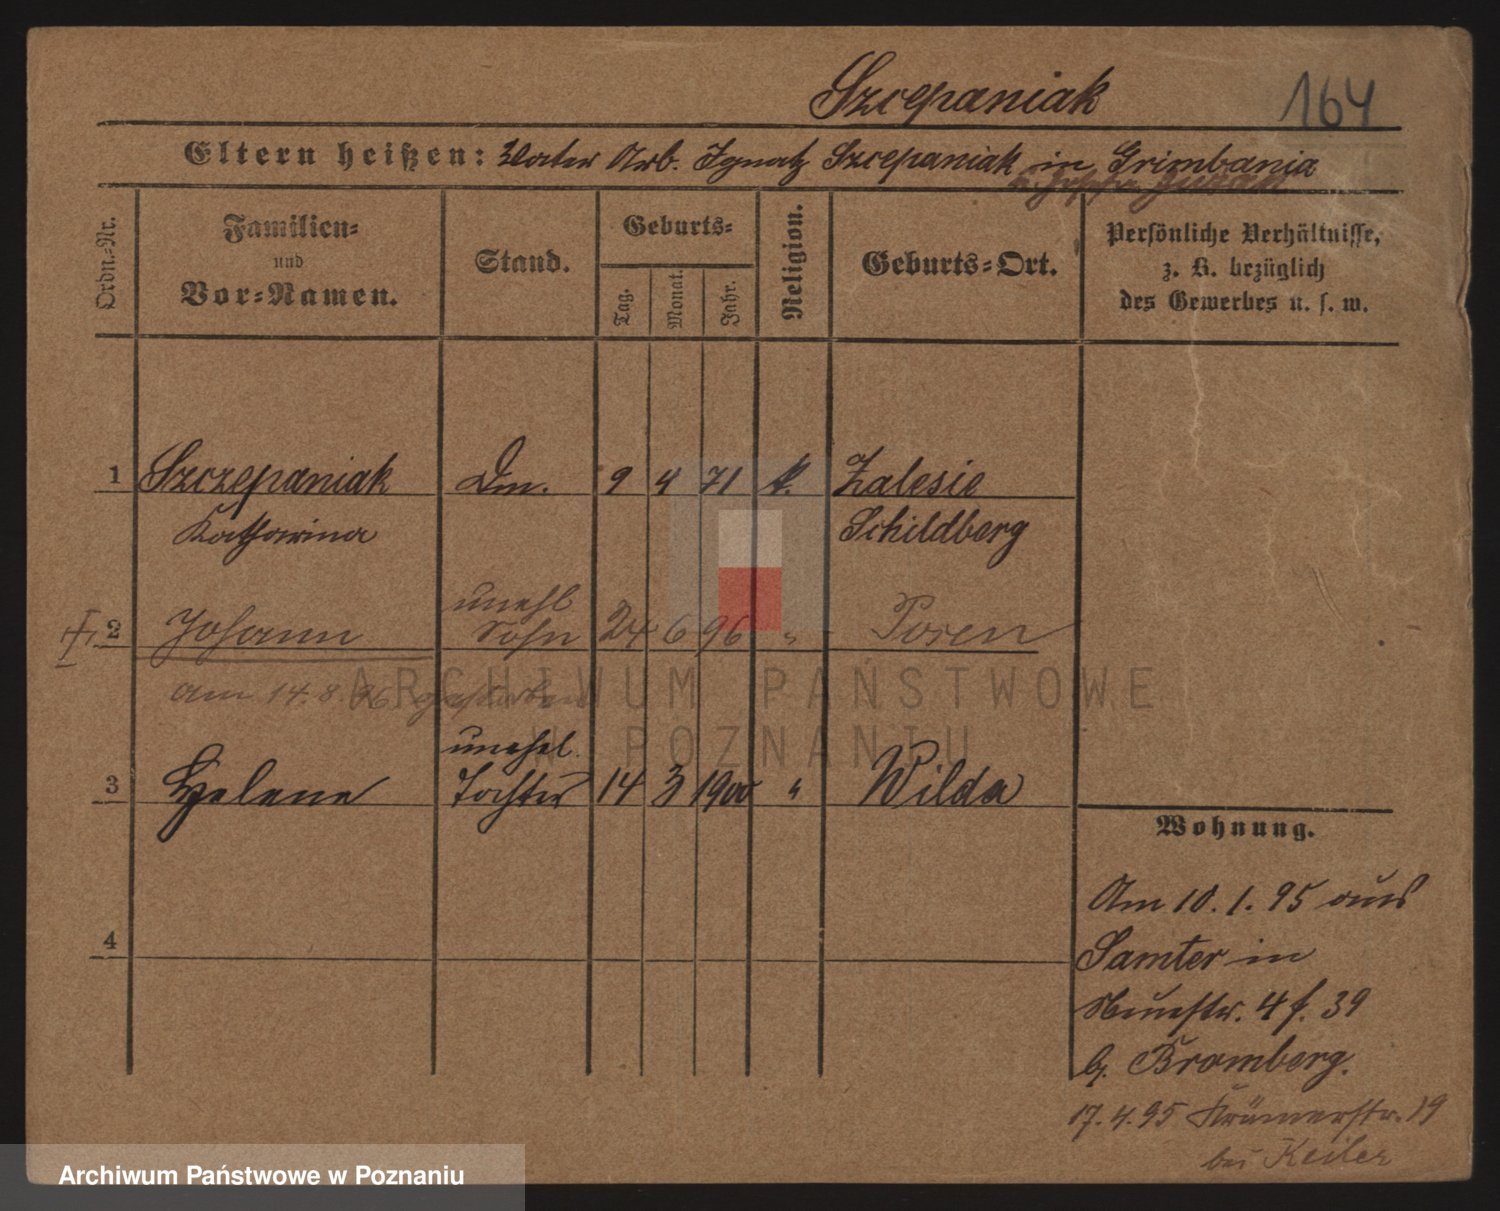 Szczepaniak 164
Eltern heißen: Vater Arb. Ignatz Szczepaniak in Grimbania
Ordn.-Nr.
Familien-
und
Vor-Namen.
Stand.
Geburts-
Tag.
Monat.
Jahr.
Religion.
Geburts-Ort.
Persönliche Verhältnisse,
z. B. bezüglich
des Gewerbes u. s. w.
1 Szczepaniak Dm. 9 4 71 k. Zalesie
Katharina Schildberg
unehl
2 Johann Sohn 24 6 96 " Posen
am 14.8.96 gestorben
unehel.
3 Helene Tochter 14 3 1900 " Wilda
4
Wohnung.
Am 10.1.95 aus
Samter in
Neuestr. 4 f. 39
b. Bromberg.
17.4.95 Krämerstr. 19
bei Keiler
ARCHIWUM PAŃSTWOWE
W POZNANIU
Archiwum Państwowe w Poznaniu